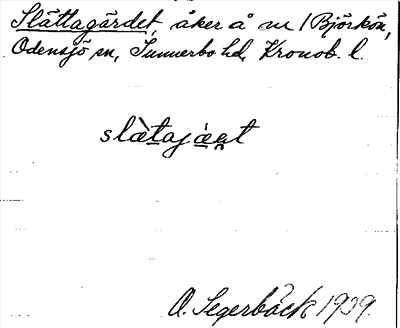 Slättagärdet, åker å nr 1 Björkön,
Odensjö sn, Sunnerbo hd, Kronob. l.
slàtajáat
A. Segerbäck 1929.